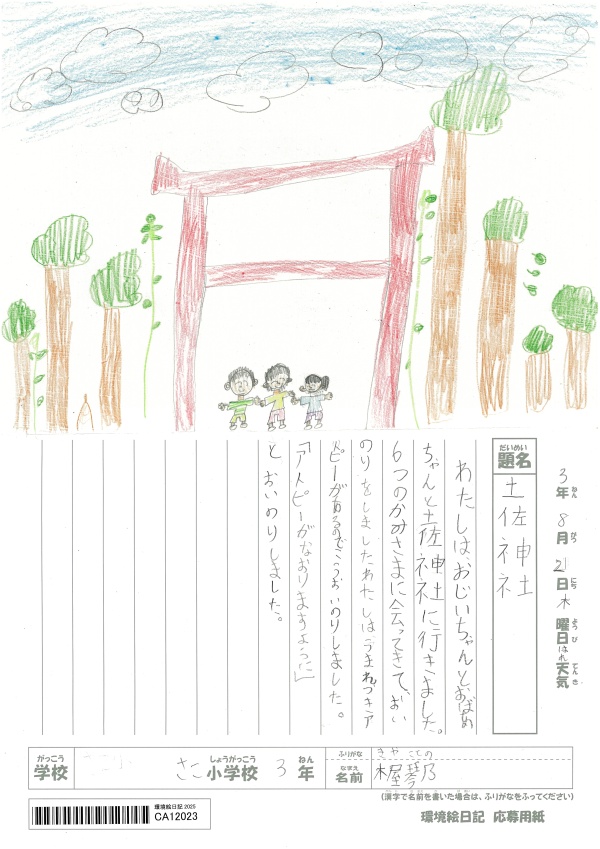 3年8月21日木曜日はれ天気
ねん がつ にち ようび てんき
だいめい
題名
土佐神社
わたしは、おじいちゃんとおばあ
ちゃんと土佐神社に行きました。
6つのかみさまに会ってきて、おい
のりをしましたわたしはうまれつきア
トピーがあるのでこうおいのりしました。
「アトピーがなおりますように」
とおいのりしました。
がっこう
学校
さこ
しょうがっこう
小学校
3
ねん
年
ふりがな
きや ことの
なまえ
名前
木屋 琴乃
(漢字で名前を書いた場合は、ふりがなをふってください)
環境絵日記 2025
CA12023
環境絵日記 応募用紙